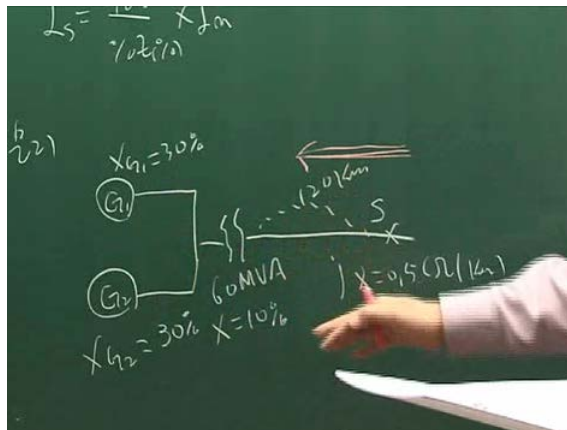 Is = × In
%Z(%)
2)
XG1=30%
G1
120Km
S
G2
60MVA
X=0,5Ω/Km)
XG2=30%
X=10%